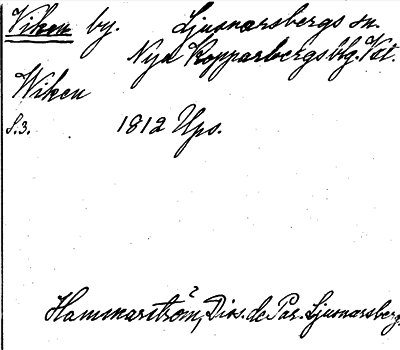 Viken by. Ljusnarsbergs sn.
Nya Kopparbergs bg. Vstl.
Wiken
S. 3. 1812 Ups.
2
Hammarström, Diss. de Par. Ljusnarsberg.